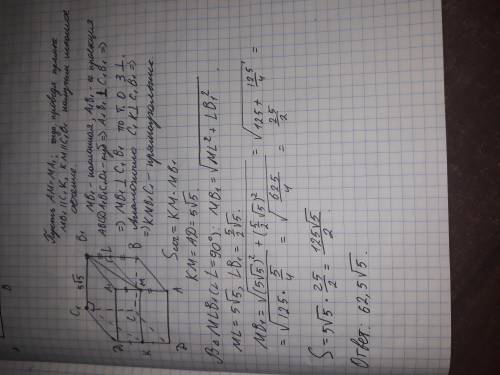 Пусть AM = MA₁, тогда проведя прямые
MB₁ || C₁K, KM || C₁B₁ получим искомое
сечение
MB₁ - наклонная, A₁B₁ - её проекция
ABCDA₁B₁C₁D₁ - куб => A₁B₁ ⊥ C₁B₁ =>
=> MB₁ ⊥ C₁B₁ по Т. О 3 ⊥.
Аналогично C₁K ⊥ C₁B₁ =>
=> KMB₁C₁ - прямоугольник
C₁ 5√5 B₁
D₁
L
C
B
M
K
D A
Sсеч = KM · MB₁
KM = AD = 5√5.
В Δ MLB₁ (∠L = 90°): MB₁ = √ML² + LB₁²
ML = 5√5, LB₁ = 5/2 √5.
MB₁ = √(5√5)² + (5/2 √5)² = √125 + 125/4 =
= √125 · 5/4 = √625/4 = 25/2
S = 5√5 · 25/2 = 125√5/2
Ответ: 62,5√5.
B